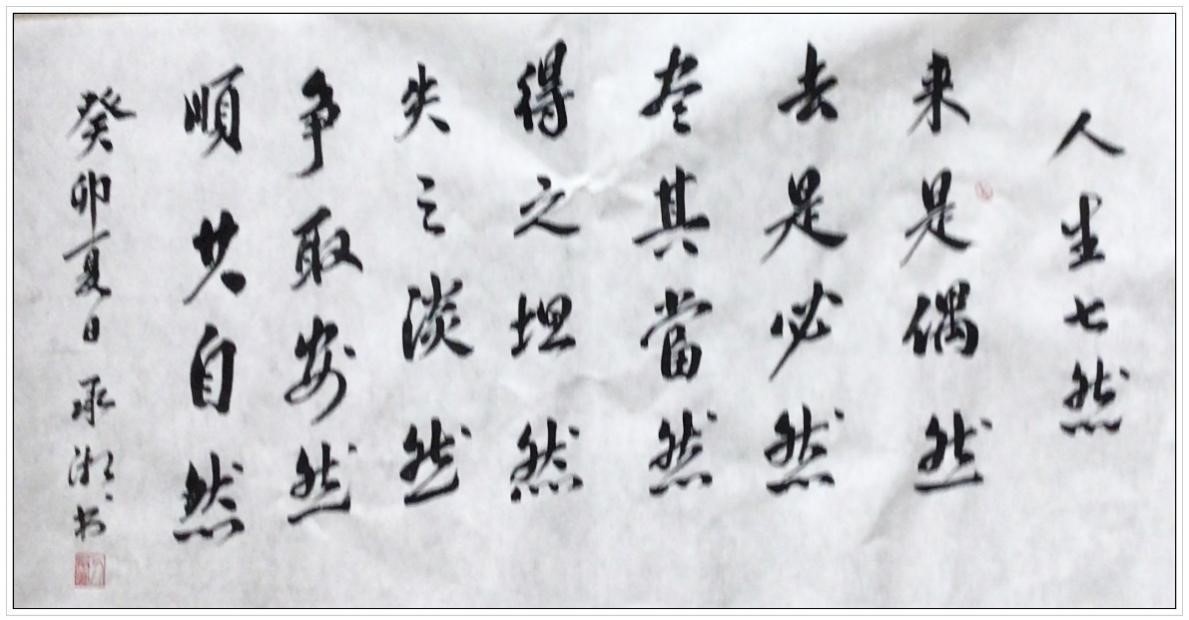 人生七然
来是偶然
去是必然
尽其當然
得之坦然
失之淡然
争取安然
順其自然
癸卯夏日 承书